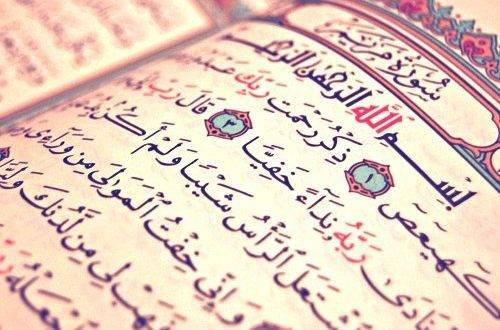 سُورَةُ مَرْيَمَ
بِسْمِ اللَّهِ الرَّحْمَٰنِ الرَّحِيمِ
كٓهيعٓصٓ ١ ذِكْرُ رَحْمَتِ رَبِّكَ
نَادَىٰ رَبَّهُۥ نِدَآءً خَفِيًّا ٣ قَالَ رَبِّ
ٱشْتَعَلَ ٱلرَّأْسُ شَيْبًا وَلَمْ أَكُنۢ
وَإِنِّى خِفْتُ ٱلْمَوَٰلِىَ مِن وَرَآءِى
فَهَبْ لِى مِن لَّدُنكَ